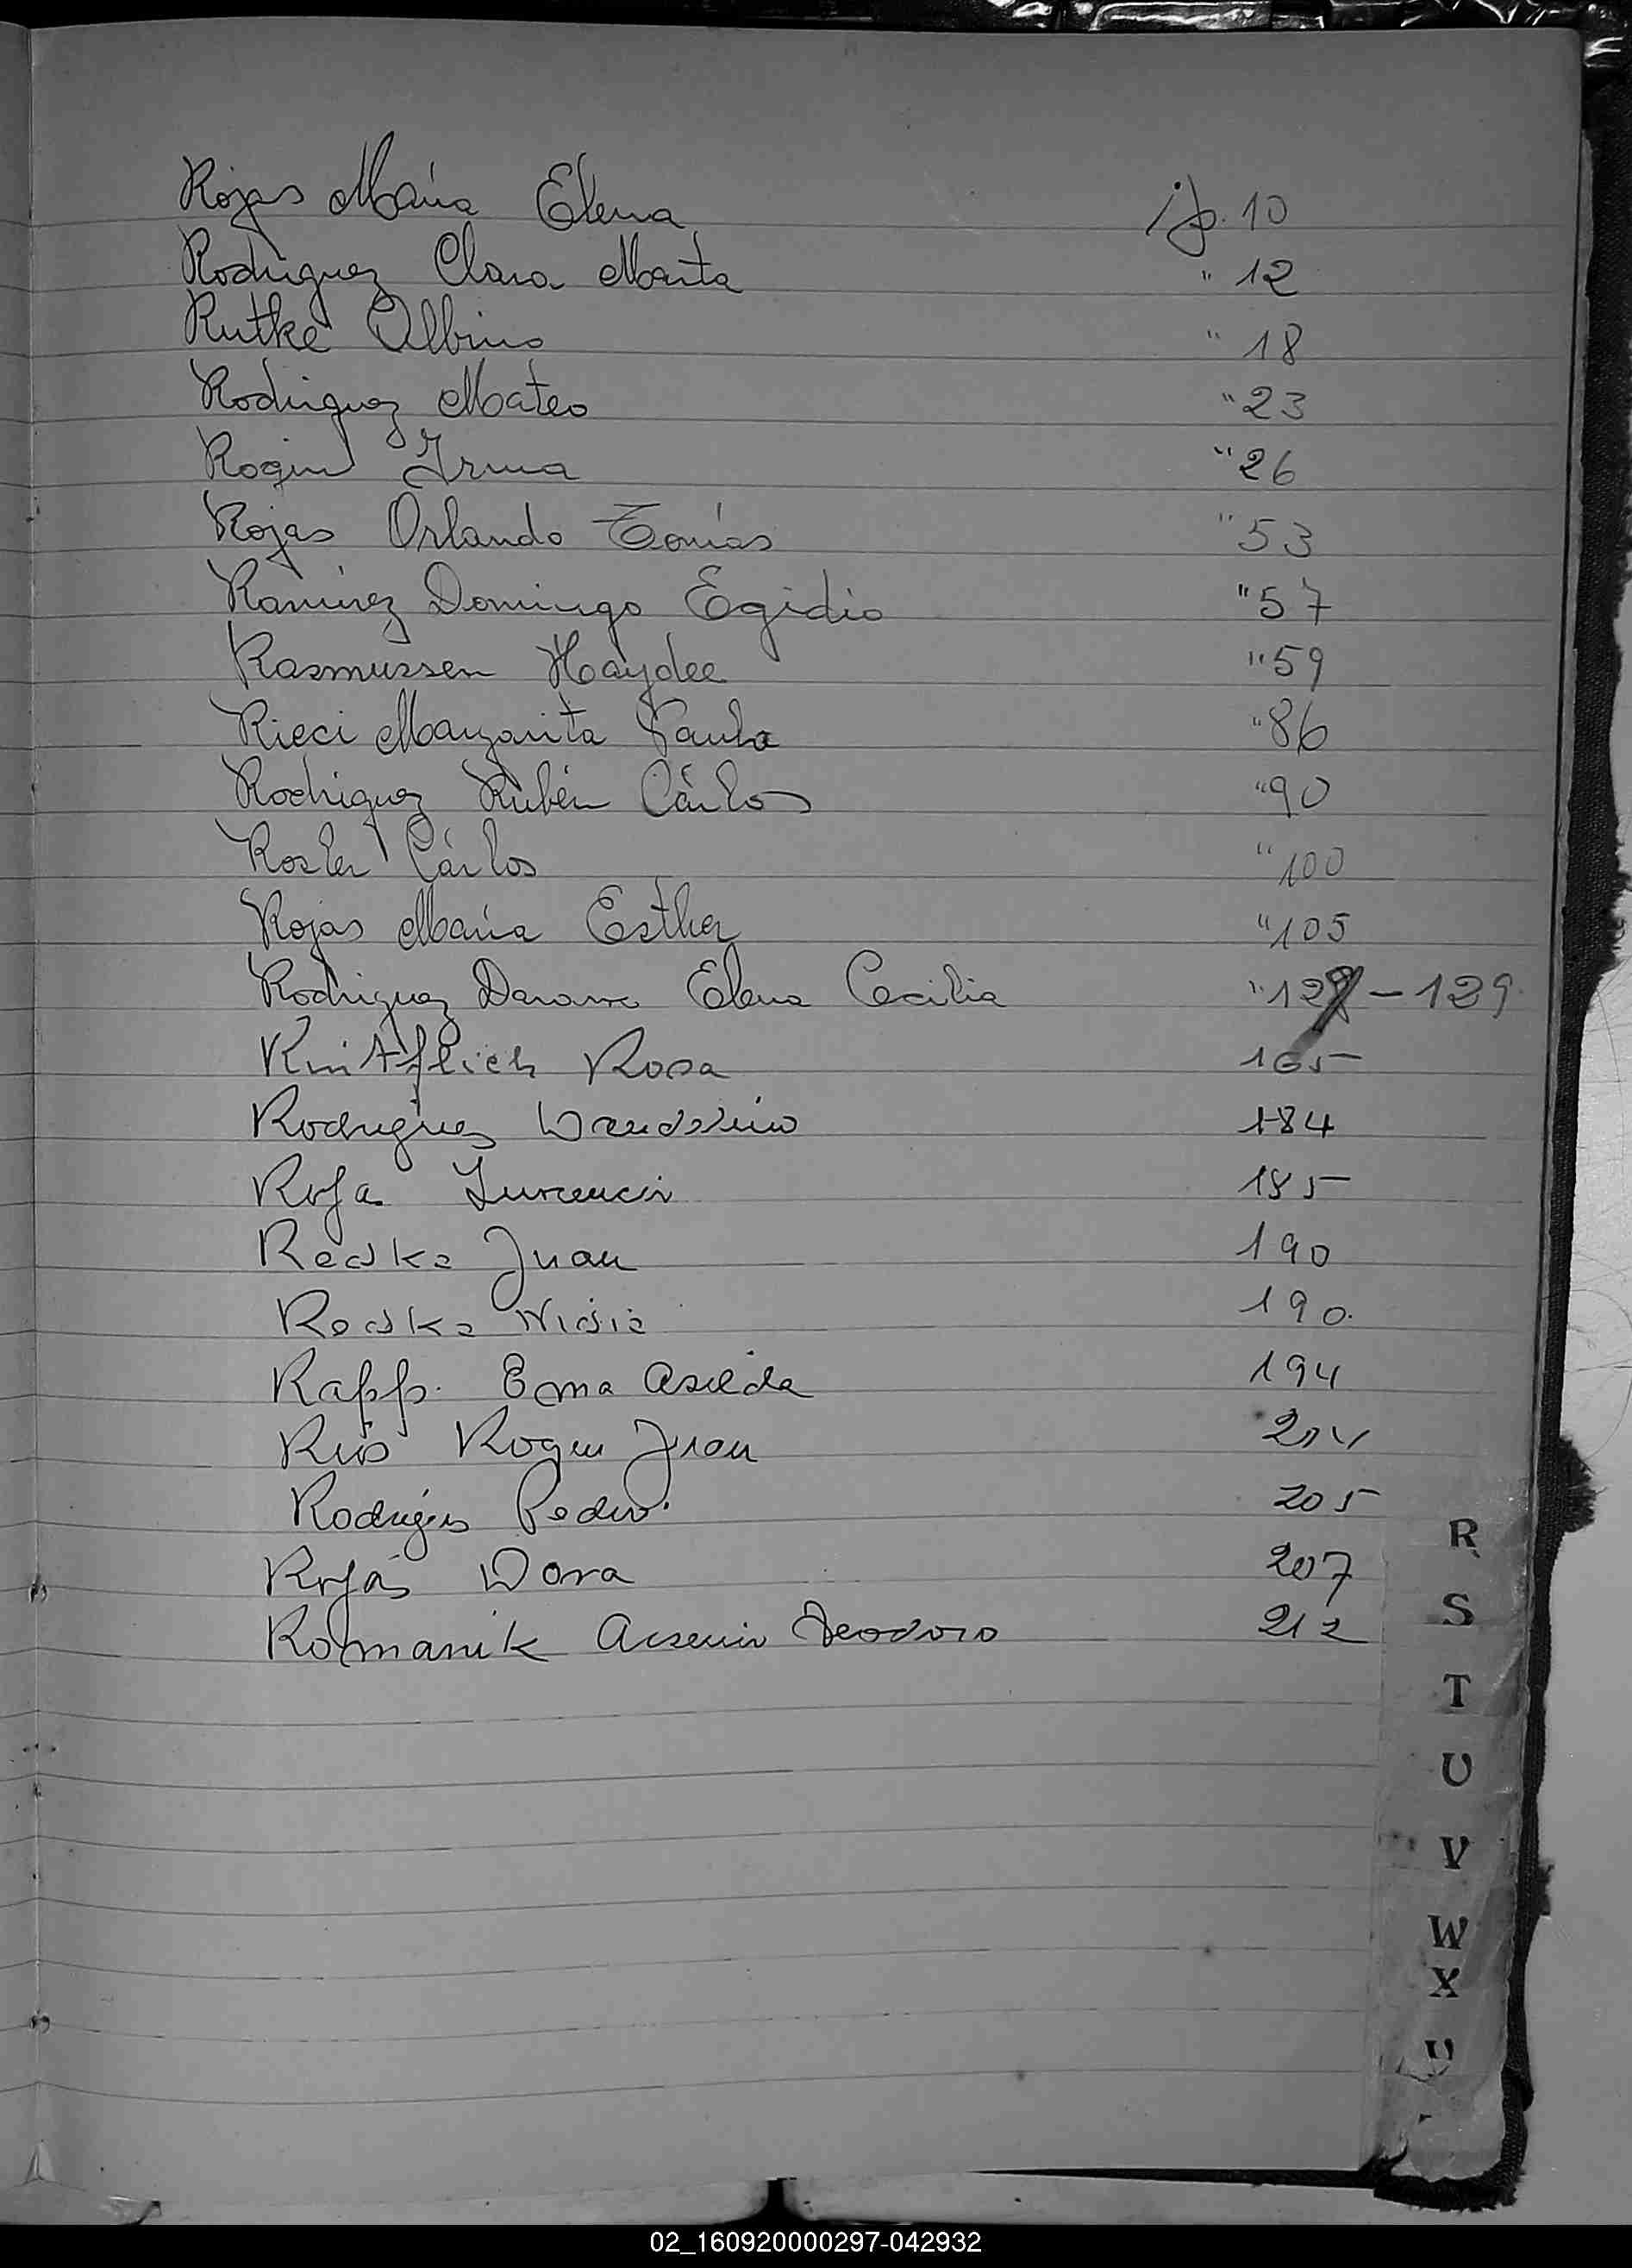 Rojas María Elena fp. 10
Rodriguez Clara Marta " 12
Rutke Albino " 18
Rodriguez Mateo " 23
Rogin Irma " 26
Rojas Orlando Tomás " 53
Ramírez Domingo Egidio " 57
Rasmussen Haydee " 59
Ricci Margarita Paula " 86
Rodriguez Rubén Cárlos " 90
Rosler Cárlos " 100
Rojas María Esther " 105
Rodriguez Elena Cecilia " 128 - 129
Rosa 165
Rodriguez 184
Roja 185
Redka Juan 190
Redka Nidia 190.
Rapp. Ema Asilda 194
Rios Roger Juan 204
Rodriguez Pedro. 205
Rojás Dora 207
Romanik Arsenio Teodoro 212
R
S
T
U
V
W
X
02_160920000297-042932